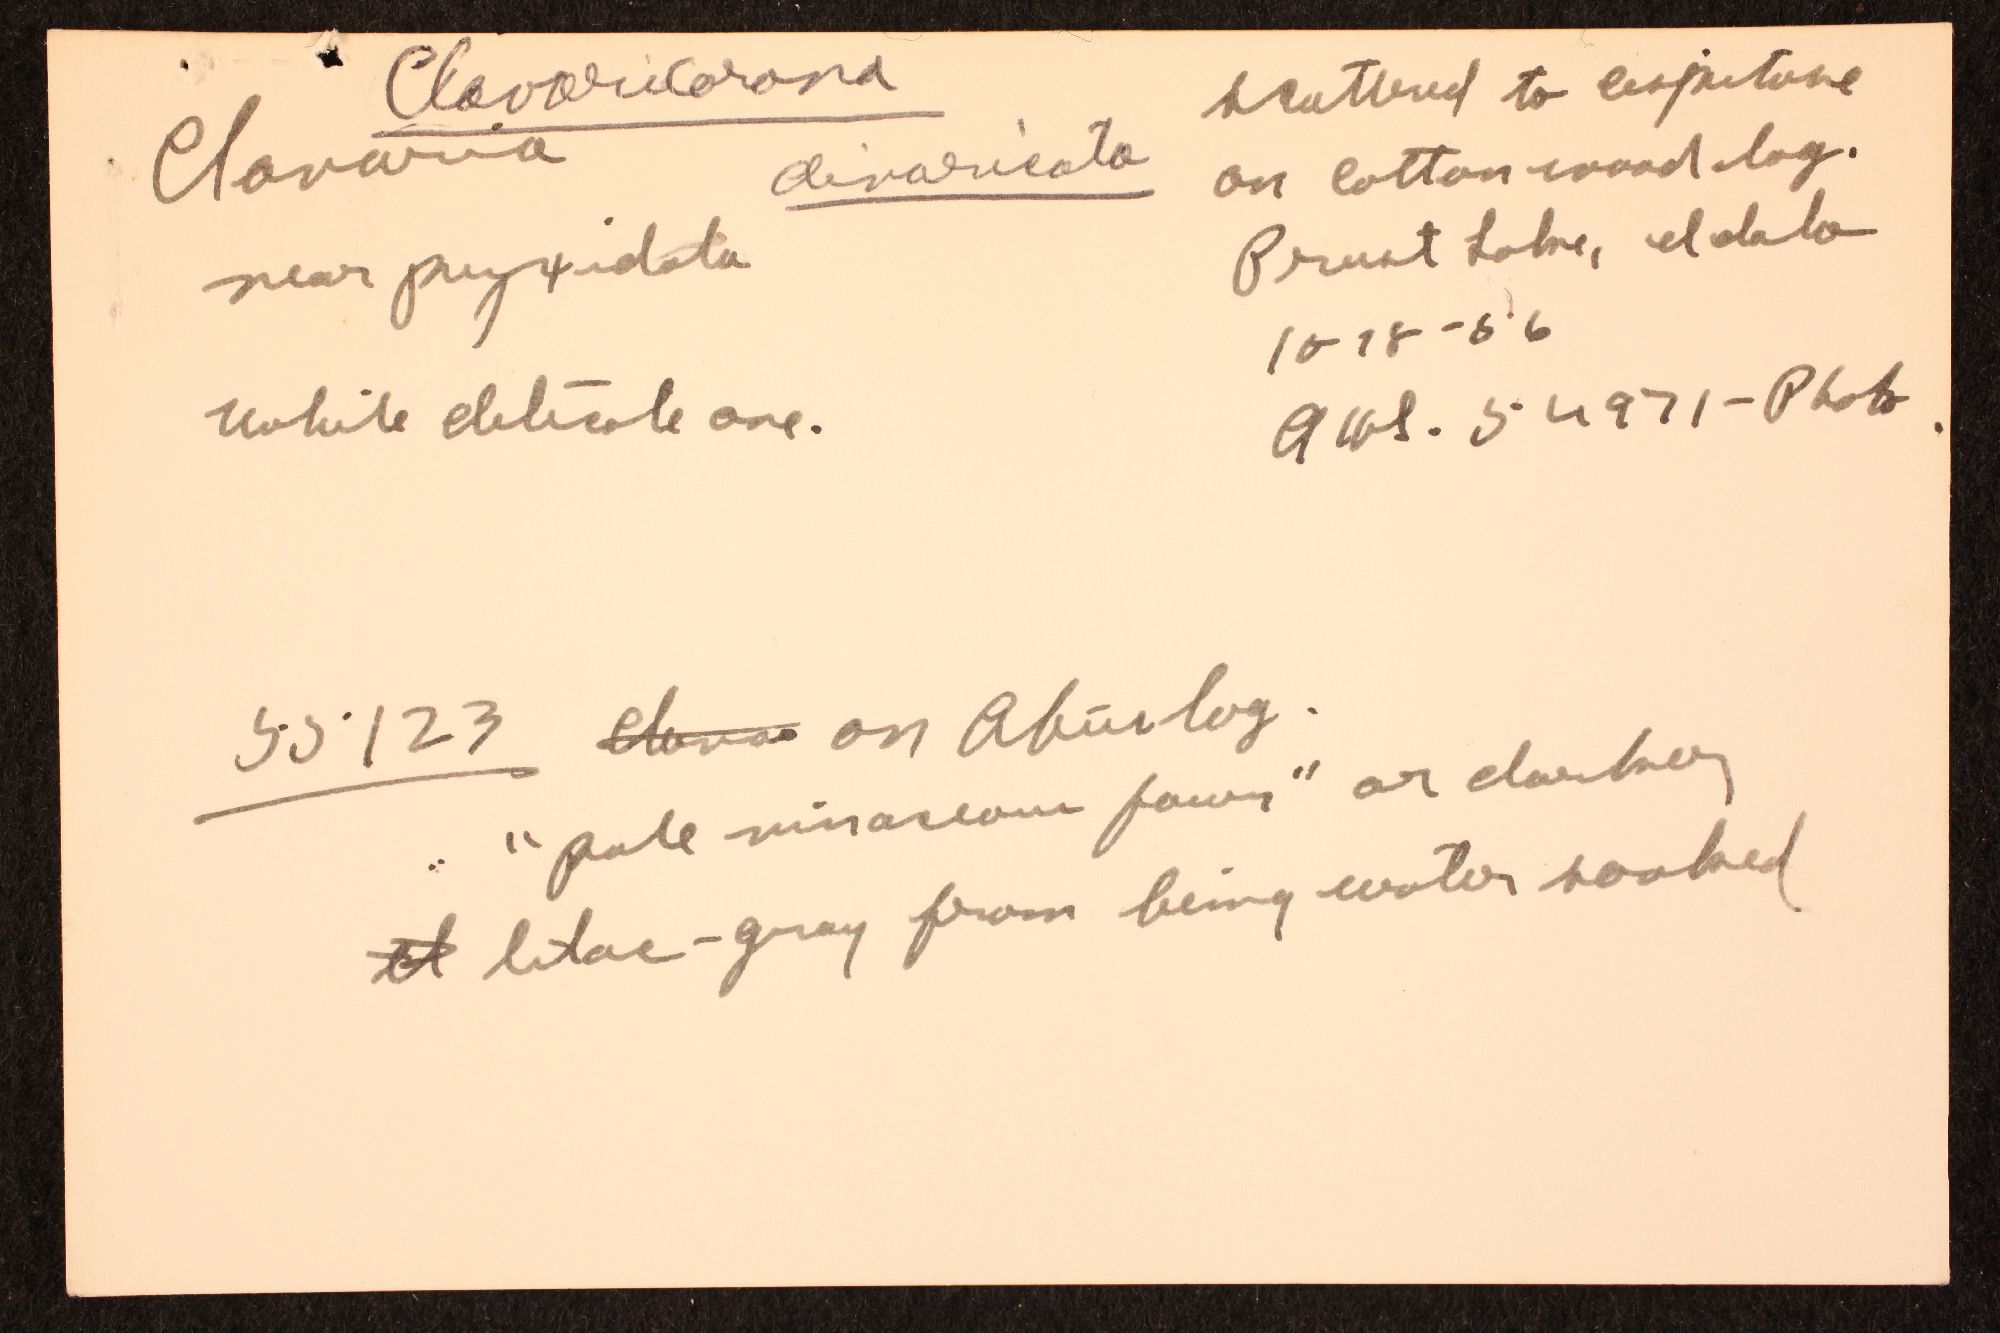 Clavaricorona
Clavaria
divaricata
near pyxidata
white delicate one.
scattered to cespitose
on cottonwood log.
Priest Lake, Idaho
10-18-56
AHS. 54971 - Photo.
55123 Clava on Abies log.
"pale vinaceous fawn" or darker,
lilac-gray from being water soaked